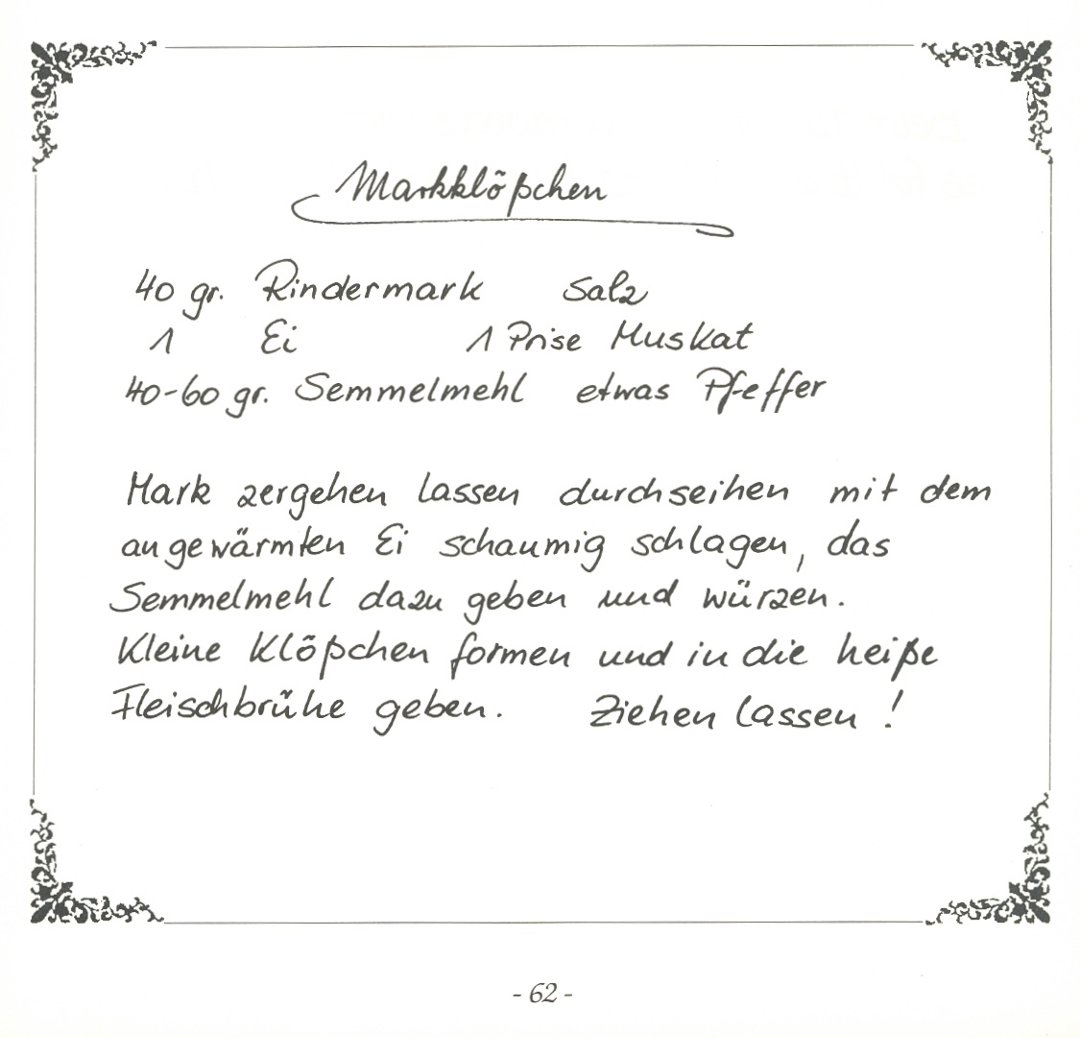 Markklößchen
40 gr. Rindermark Salz
1 Ei 1 Prise Muskat
40-60 gr. Semmelmehl etwas Pfeffer
Mark zergehen lassen durchseihen mit dem
angewärmten Ei schaumig schlagen, das
Semmelmehl dazu geben und würzen.
Kleine Klößchen formen und in die heiße
Fleischbrühe geben. Ziehen lassen!
- 62 -